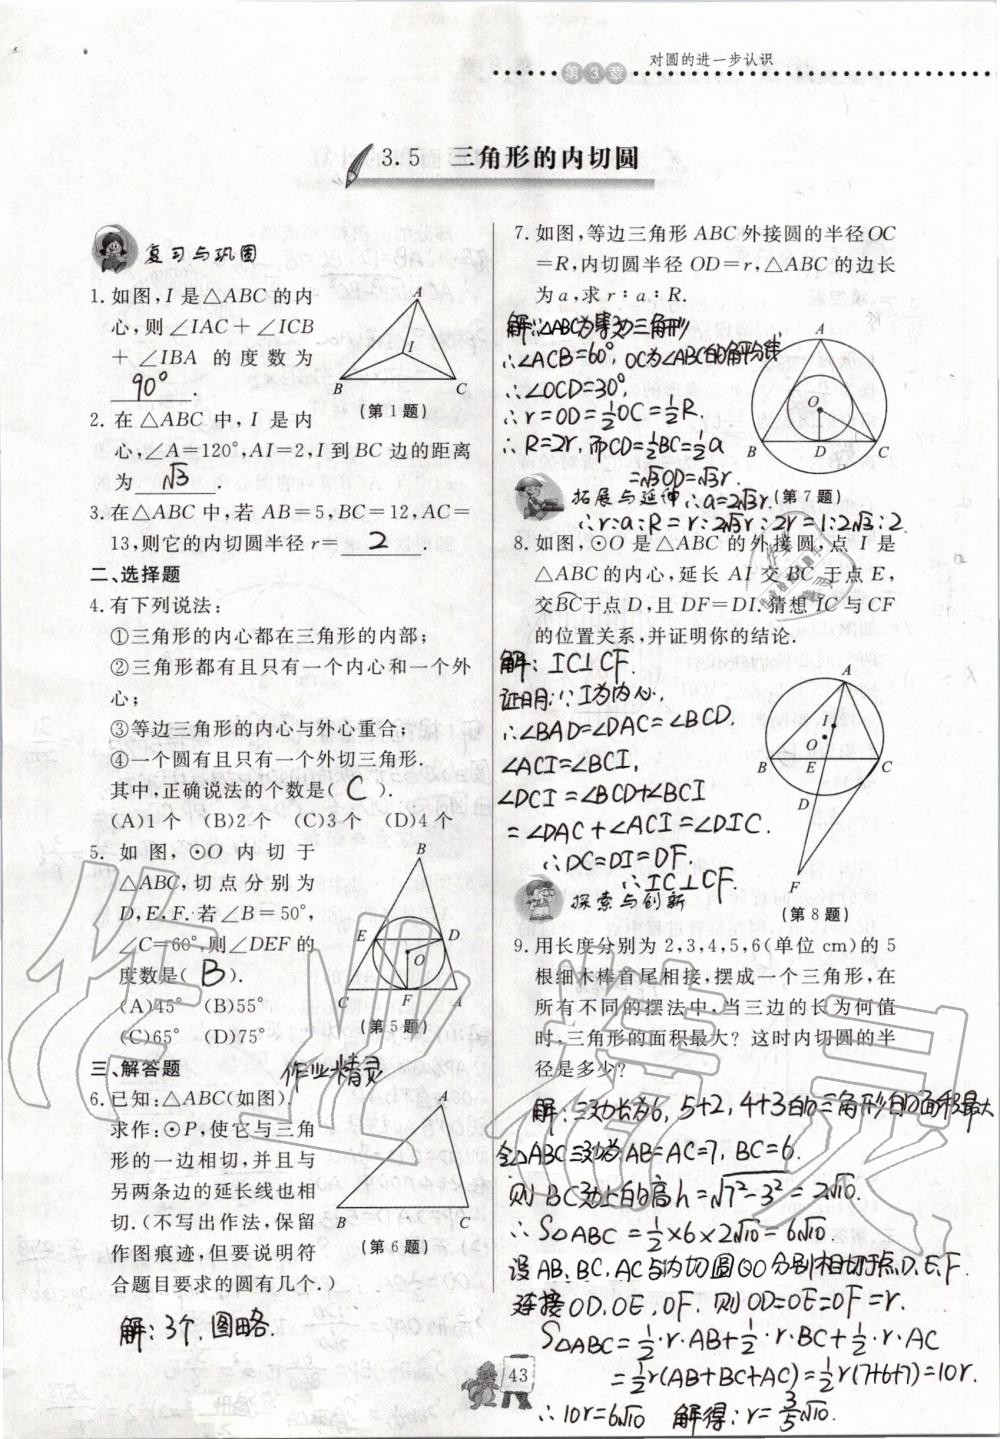 对圆的进一步认识
第3章
3.5 三角形的内切圆
复习与巩固
1.如图,I是△ABC的内
心,则∠IAC+∠ICB
+∠IBA的度数为
90°.
A
I
B C
(第1题)
2.在△ABC中,I是内
心,∠A=120°,AI=2,I到BC边的距离
为√3.
3.在△ABC中,若AB=5,BC=12,AC=
13,则它的内切圆半径r=2.
二、选择题
4.有下列说法:
①三角形的内心都在三角形的内部;
②三角形都有且只有一个内心和一个外
心;
③等边三角形的内心与外心重合;
④一个圆有且只有一个外切三角形.
其中,正确说法的个数是(C).
(A)1个 (B)2个 (C)3个 (D)4个
5.如图,⊙O内切于
△ABC,切点分别为
D,E,F.若∠B=50°,
∠C=60°,则∠DEF的
度数是(B).
(A)45° (B)55°
(C)65° (D)75°
B
E D
O
C F A
(第5题)
三、解答题
作业精灵
6.已知:△ABC(如图).
求作:⊙P,使它与三角
形的一边相切,并且与
另两条边的延长线也相
切.(不写出作法,保留
作图痕迹,但要说明符
合题目要求的圆有几个.)
A
B C
(第6题)
解:3个.图略.
7.如图,等边三角形ABC外接圆的半径OC
=R,内切圆半径OD=r,△ABC的边长
为a,求r∶a∶R.
解:∵△ABC为等边三角形
∴∠ACB=60°,OC为∠ABC的角平分线
∴∠OCD=30°,
∴r=OD=1/2OC=1/2R.
∴R=2r,而CD=1/2BC=1/2a
=√3OD=√3r.
∴a=2√3r.
∴r:a:R=r:2√3r:2r=1:2√3:2.
A
O
B D C
(第7题)
拓展与延伸
8.如图,⊙O是△ABC的外接圆,点I是
△ABC的内心,延长AI交BC于点E,
交BC于点D,且DF=DI.猜想IC与CF
的位置关系,并证明你的结论.
解:IC⊥CF.
证明:∵I为内心,
∴∠BAD=∠DAC=∠BCD,
∠ACI=∠BCI,
∠DCI=∠BCD+∠BCI
=∠DAC+∠ACI=∠DIC.
∴DC=DI=DF.
∴IC⊥CF.
A
I
O
B E C
D
F
(第8题)
探索与创新
9.用长度分别为2,3,4,5,6(单位cm)的5
根细木棒首尾相接,摆成一个三角形,在
所有不同的摆法中,当三边的长为何值
时,三角形的面积最大?这时内切圆的半
径是多少?
解:三边长为6,5+2,4+3的三角形的面积最大
令△ABC三边为AB=AC=7,BC=6.
则BC边上的高h=√7²-3²=2√10.
∴S△ABC=1/2×6×2√10=6√10.
设AB,BC,AC与内切圆⊙O分别相切于点D,E,F.
连接OD,OE,OF.则OD=OE=OF=r.
S△ABC=1/2·r·AB+1/2·r·BC+1/2·r·AC
=1/2r(AB+BC+AC)=1/2r(7+6+7)=10r.
∴10r=6√10 解得:r=3/5√10.
43
作业精灵